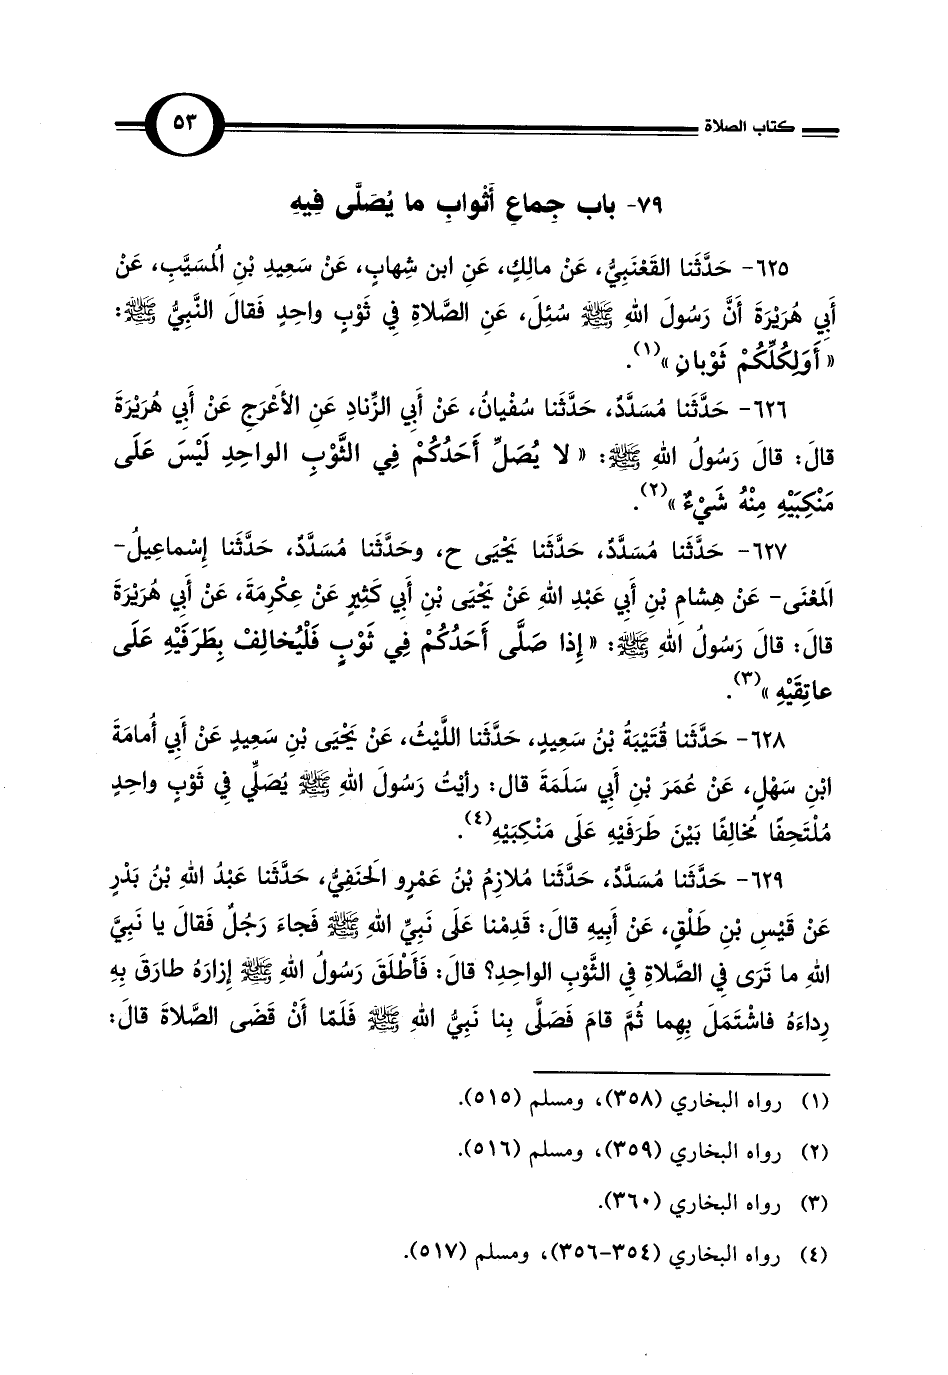 كتاب الصلاة ٥٣
٧٩- باب جِماعِ أَثْوابِ ما يُصَلَّى فِيهِ
٦٢٥- حَدَّثَنا القَعْنَبِيُّ، عَنْ مالِكٍ، عَنِ ابن شِهابٍ، عَنْ سَعِيدِ بْنِ الُمسَيَّبِ، عَنْ
أَبِي هُرَيْرَةَ أَنَّ رَسُولَ اللهِ ﷺ سُئِلَ، عَنِ الصَّلاةِ فِي ثَوْبٍ واحِدٍ فَقالَ النَّبِيُّ ﷺ:
« أَوَلِكُلِّكُمْ ثَوْبانِ »(١).
٦٢٦- حَدَّثَنا مُسَدَّدٌ، حَدَّثَنا سُفْيانُ، عَنْ أَبِي الزِّنادِ عَنِ الأَعْرَجِ عَنْ أَبِي هُرَيْرَةَ
قالَ: قالَ رَسُولُ اللهِ ﷺ: « لا يُصَلِّ أَحَدُكُمْ فِي الثَّوْبِ الواحِدِ لَيْسَ عَلَى
مَنْكِبَيْهِ مِنْهُ شَيْءٌ »(٢).
٦٢٧- حَدَّثَنا مُسَدَّدٌ، حَدَّثَنا يَحْيَى ح، وحَدَّثَنا مُسَدَّدٌ، حَدَّثَنا إِسْماعِيلُ-
الَمعْنَى- عَنْ هِشامِ بْنِ أَبِي عَبْدِ اللهِ عَنْ يَحْيَى بْنِ أَبِي كَثِيرٍ عَنْ عِكْرِمَةَ، عَنْ أَبِي هُرَيْرَةَ
قالَ: قالَ رَسُولُ اللهِ ﷺ: « إِذا صَلَّى أَحَدُكُمْ فِي ثَوْبٍ فَلْيُخالِفْ بِطَرَفَيْهِ عَلَى
عاتِقَيْهِ »(٣).
٦٢٨- حَدَّثَنا قُتَيْبَةُ بْنُ سَعِيدٍ، حَدَّثَنا اللَّيْثُ، عَنْ يَحْيَى بْنِ سَعِيدٍ عَنْ أَبِي أُمامَةَ
ابْنِ سَهْلٍ، عَنْ عُمَرَ بْنِ أَبِي سَلَمَةَ قال: رأَيْتُ رَسُولَ اللهِ ﷺ يُصَلِّي فِي ثَوْبٍ واحِدٍ
مُلْتَحِفًا مُخالِفًا بَيْنَ طَرَفَيْهِ عَلَى مَنْكِبَيْهِ(٤).
٦٢٩- حَدَّثَنا مُسَدَّدٌ، حَدَّثَنا مُلازِمُ بْنُ عَمْرٍو الَحنَفِيُّ، حَدَّثَنا عَبْدُ اللهِ بْنُ بَدْرٍ
عَنْ قَيْسِ بْنِ طَلْقٍ، عَنْ أَبِيهِ قالَ: قَدِمْنا عَلَى نَبِيِّ اللهِ ﷺ فَجاءَ رَجُلٌ فَقالَ يا نَبِيَّ
اللهِ ما تَرَى فِي الصَّلاةِ فِي الثَّوْبِ الواحِدِ؟ قالَ: فَأَطْلَقَ رَسُولُ اللهِ ﷺ إِزارَهُ طارَقَ بِهِ
رِداءَهُ فاشْتَمَلَ بِهِما ثُمَّ قامَ فَصَلَّى بِنا نَبِيُّ اللهِ ﷺ فَلَمّا أَنْ قَضَى الصَّلاةَ قالَ:
(١) رواه البخاري (٣٥٨)، ومسلم (٥١٥).
(٢) رواه البخاري (٣٥٩)، ومسلم (٥١٦).
(٣) رواه البخاري (٣٦٠).
(٤) رواه البخاري (٣٥٤-٣٥٦)، ومسلم (٥١٧).